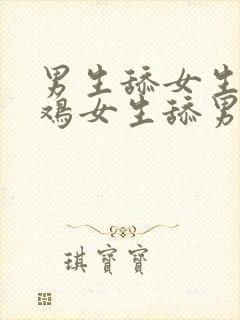 男生舔女生
鸡女生舔男
琪寶寶